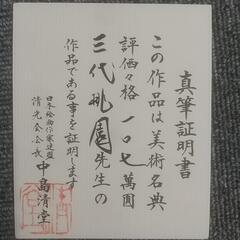 真筆証明書
この作品は美術名典
評価々格一〇七萬圓
三代 園先生の
作品である事を証明します
日本絵画作家連盟
清光会会長 中島清堂